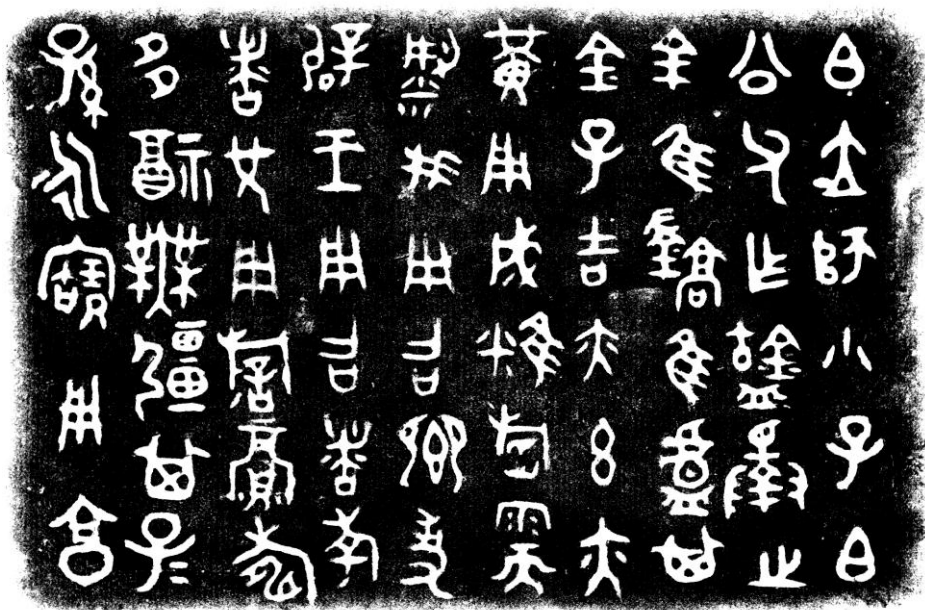 白大師小子白
公父乍𥂴擇之
金隹鐈隹盧其
金孔吉亦玄亦
黃用成糕稻需
粱我用召卿事
辟王用召者考
者兄用旂眉壽
多福無彊其子
孫永寶用亯